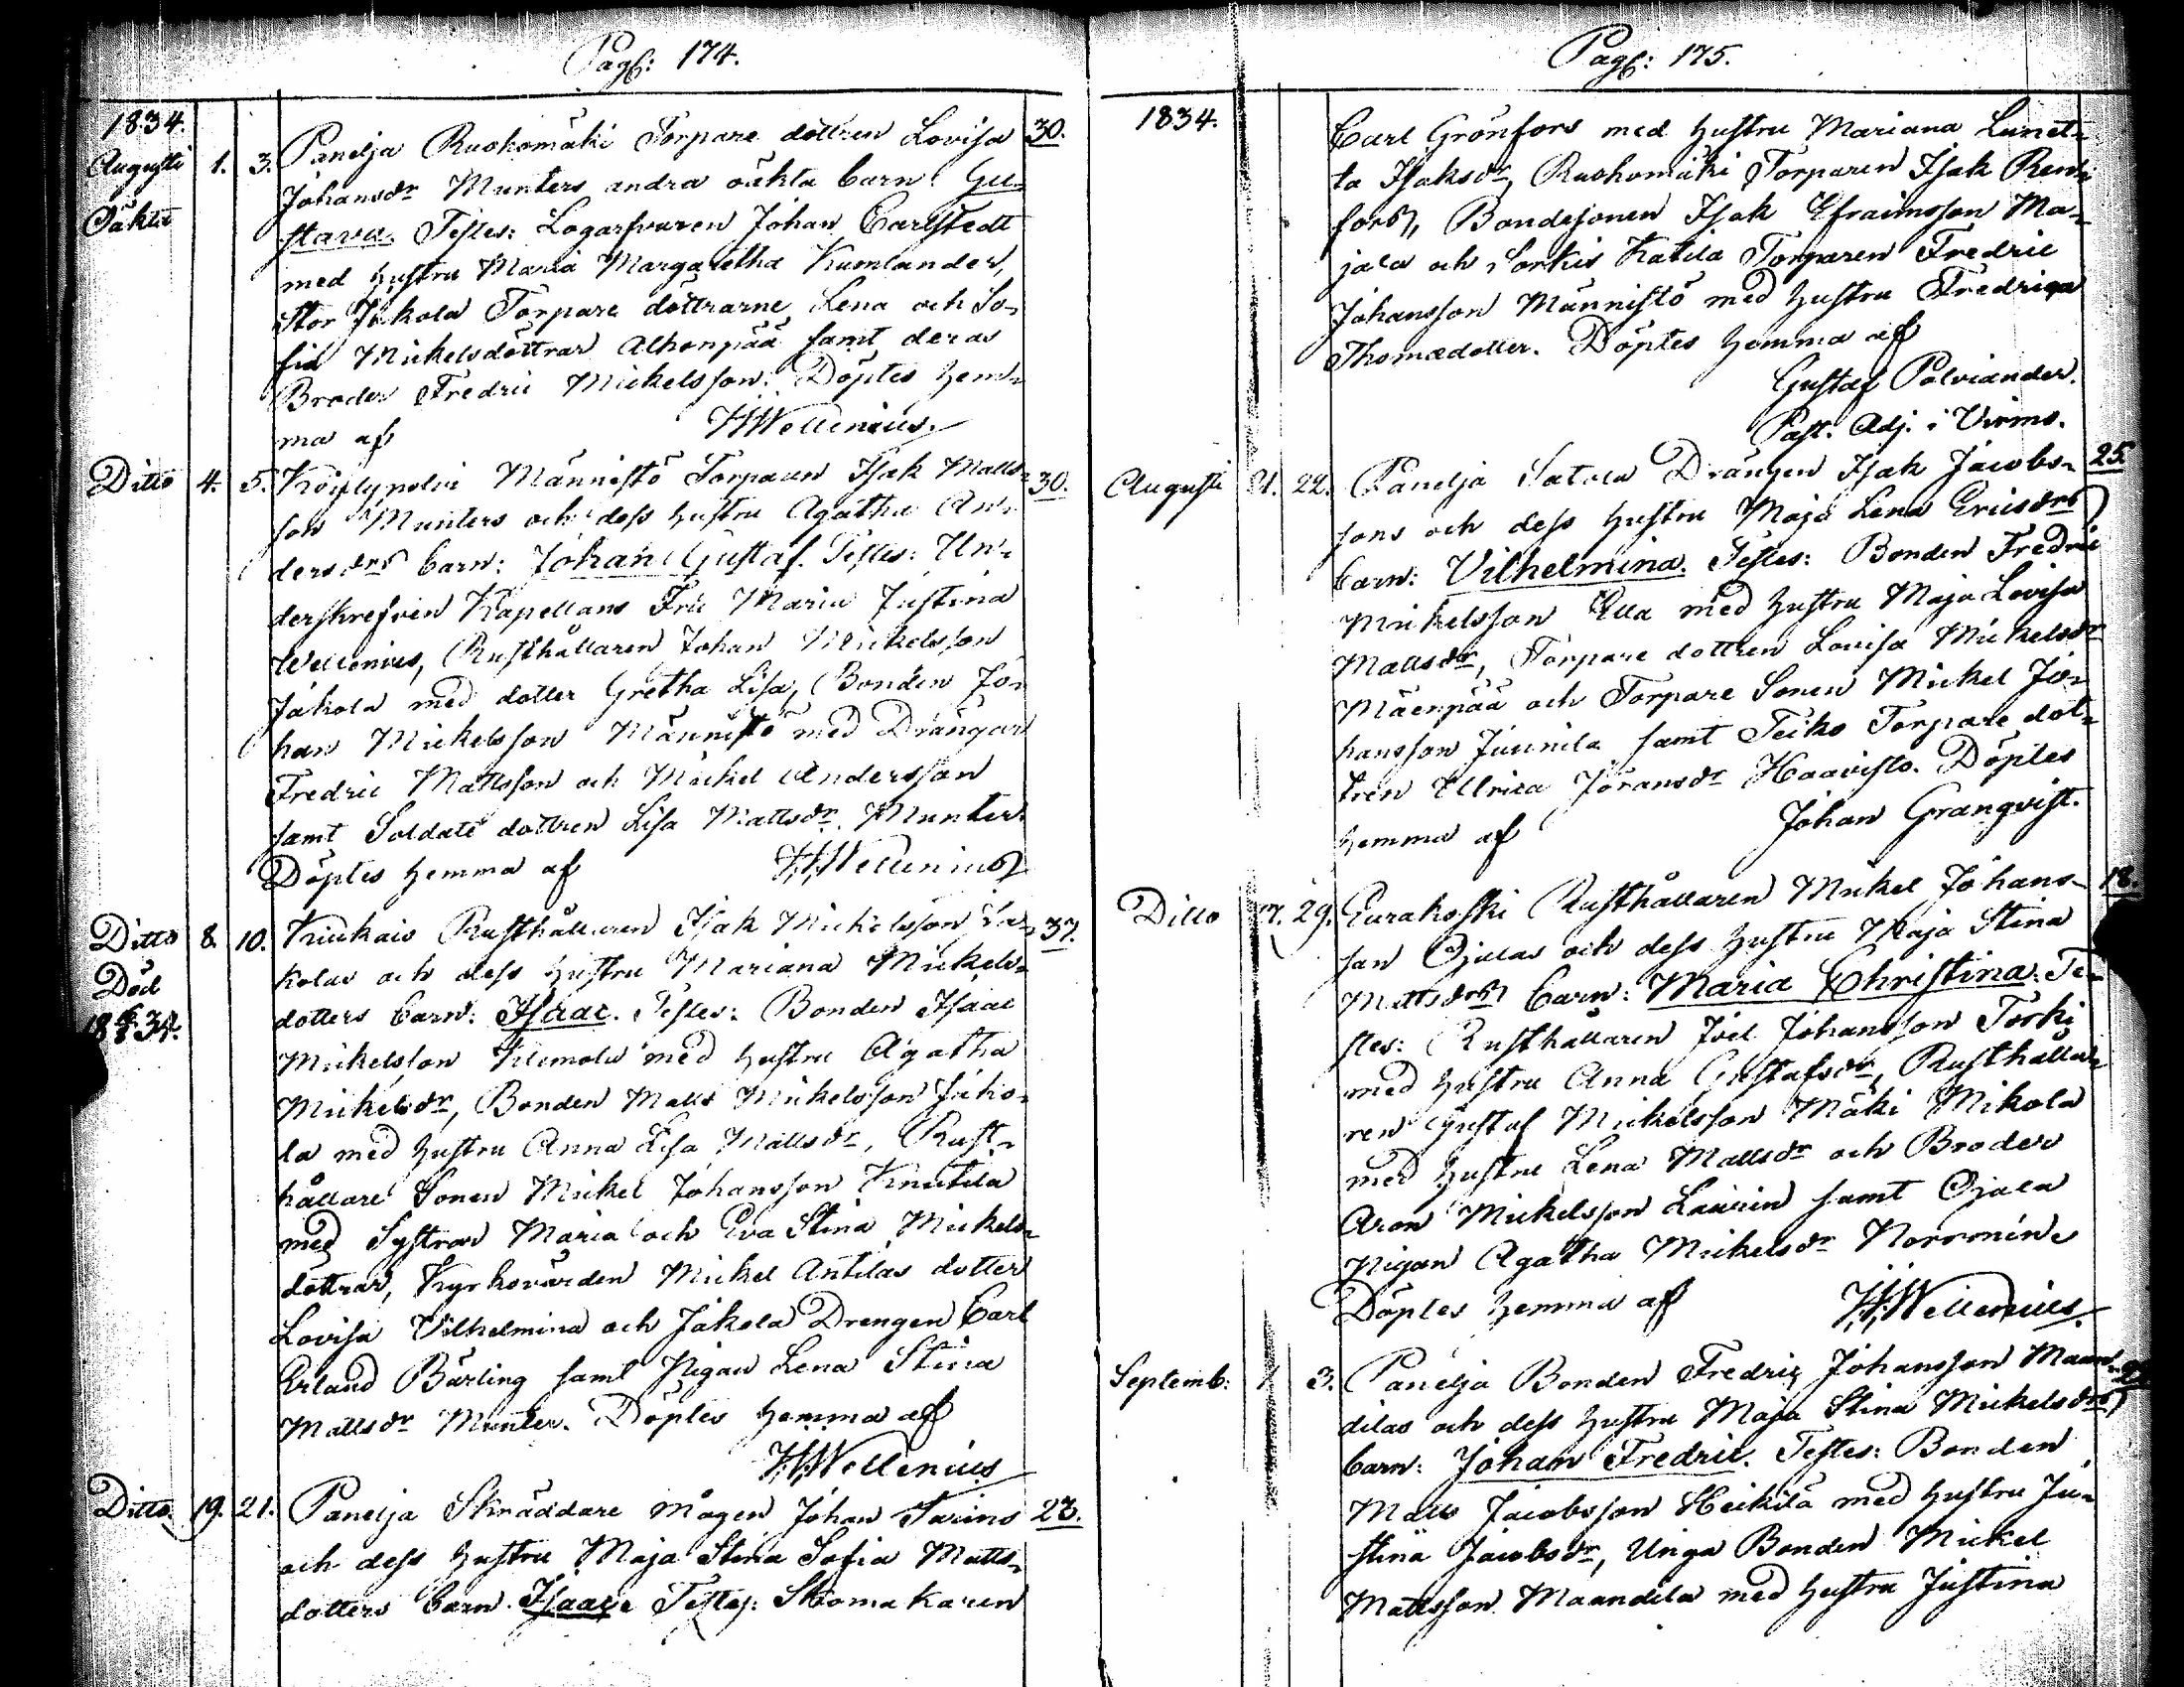 Pag: 174.
1834.
Augusti 1. 3. Panelja Ruohomäki Torpare dottren Lovisa 30.
Oäkta
Johansdr Munters andra oäkta barn: Gu-
stava. Testes: Logarfvaren Johan Carlstedt
med hustru Maria Margaretha Kumlander,
Stor Jakola Torpare döttrarne Lena och So-
fia Mickelsdöttrar Alhonpää samt deras
Broder Fredric Mickelsson. Döptes hem-
ma af HHWellenius.
Ditto 4. 5. Köylypolvi Männistö Torparen Isak Matts- 30.
son Munters och dess hustru Agatha An-
dersdrs barn: Johan Gustaf. Testes: Un-
derskrefven Kapellans Fru Maria Justina
Wellenius, Rusthållaren Johan Mickelsson
Jakola med dotter Gretha Lisa, Bonden Jo-
han Mickelsson Männistö med Drängar
Fredric Mattsson och Mickel Andersson
samt Soldate dottren Lisa Mattsdr. Munter.
Döptes hemma af HHWellenius
Ditto 8. 10. Kiukais Rusthållaren Isak Mickelsson Ja- 37.
Död
18 34.
kolas och dess hustru Mariana Mickels-
dotters barn: Isaac. Testes: Bonden Isaac
Mickelsson Vilemola med hustru Agatha
Mickelsdr, Bonden Matts Mickelsson Jako-
la med hustru Anna Lisa Mattsdr, Rust-
hållare Sonen Mickel Johansson Knutila
med Systrar Maria och Eva Stina Mickels-
döttrar, Kyrkovärden Mickel Antilas dotter
Lovisa Vilhelmina och Jakola Drengen Carl
Erland Bärling samt Pigan Lena Stina
Mattsdr Munter. Döptes hemma af
HHWellenius
Ditto 19. 21. Panelja Skräddare mågen Johan Tarins 23.
och dess hustru Maja Stina Sofia Matts-
dotters barn. Isaac Testes: Skomakaren
Pag: 175.
1834.
Carl Grönfors med hustru Mariana Lunet-
ta Isaksdr, Ruohomäki Torparen Isak Ren-
fors, Bondesonen Isak Efraimsson Ma-
jala och Sorkis Katila Torparen Fredric
Johansson Männistö med hustru Fredrica
Thomædotter. Döptes hemma af
Gustaf Polviander.
Past. Adj. i Virmo.
Augusti 21. 22. Panelja Satola Drängen Isak Jacobs- 25.
sons och dess hustru Maja Lena Ericsdrs
barn: Vilhelmina. Testes: Bonden Fredric
Mickelsson Ella med hustru Maja Lovisa
Mattsdr, Torpare dottren Lovisa Mickelsdr
Mäenpää och Torpare Sonen Mickel Jo-
hansson Junnila samt Teiko Torpare dot-
tren Ulrica Jöransdr Haavisto. Döptes
hemma af Johan Granqvist.
Ditto 27. 29. Eurakoski Rusthållaren Mickel Johans- 18.
son Ojalas och dess hustru Maja Stina
Mattsdrs barn: Maria Christina. Te-
stes: Rusthållaren Joel Johansson Torki
med hustru Anna Gustafsdr, Rusthålla-
ren Gustaf Mickelsson Mäki Mikola
med hustru Lena Mattsdr och Broder
Aron Mickelsson Laurin samt Ojala
Pigan Agatha Mickelsdr Norrmin.
Döptes hemma af HHWellenius.
Septemb: 1. 3. Panelja Bonden Fredric Johansson Maan-
dilas och dess hustru Maja Stina Mickelsdrs
barn: Johan Fredric. Testes: Bonden
Matts Jacobsson Heikilä med hustru Ju-
stina Jacobsdr, Unga Bonden Mickel
Mattsson Maandila med hustru Justina